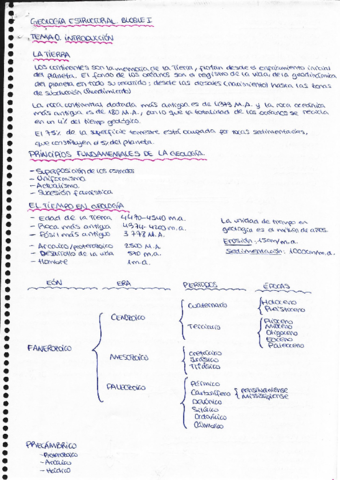 GEOLOGÍA ESTRUCTURAL BLOQUE I
TEMA 0. INTRODUCCIÓN
LA TIERRA
Los continentes son la memoria de la Tierra, datan desde el enfriamiento inicial
del planeta. El fondo de los océanos son a registro de la vida, de la geodinámica
del planeta en todo su mundo; desde las dorsales (nacimiento) hasta las fosas
de subducción (hundimiento)
La roca continental datada más antigua es de M.A. y la roca oceánica
más antigua es de 180 M.A., por lo que la totalidad de los océanos se recicla
en un 4% del tiempo geológico.
El 75% de la superficie terrestre está ocupada por rocas sedimentarias,
que constituyen del planeta.
PRINCIPIOS FUNDAMENTALES DE LA GEOLOGÍA
- Superposición de los estratos
- Uniformismo
- Actualismo
- Sucesión faunística
EL TIEMPO EN GEOLOGÍA
- Edad de la Tierra 4490-4540 m.a.
- Roca más antigua 4374-4200 m.a.
- Fósil más antiguo 3778 M.A.
- Arcaico/proterozoico 2500 M.A
- Desarrollo de la vida 540 m.a.
- Hombre 1 m.a.
La unidad de tiempo en
geología es el millón de años.
Erosión: 15m/m.a.
Sedimentación: 1000cm/m.a.
EÓN ERA PERIODOS ÉPOCAS
FANEROZOICO
CENOZOICO
CUATERNARIO
Holoceno
Pleistoceno
TERCIARIO
Plioceno
Mioceno
Oligoceno
Eoceno
Paleoceno
MESOZOICO
Cretácico
Jurásico
Triásico
PALEOZOICO
Pérmico
Carbonífero
Pensilvaniense
Mississipiense
Devónico
Silúrico
Ordovícico
Cámbrico
PRECÁMBRICO
- Proterozoico
- Arcaico
- Hádico